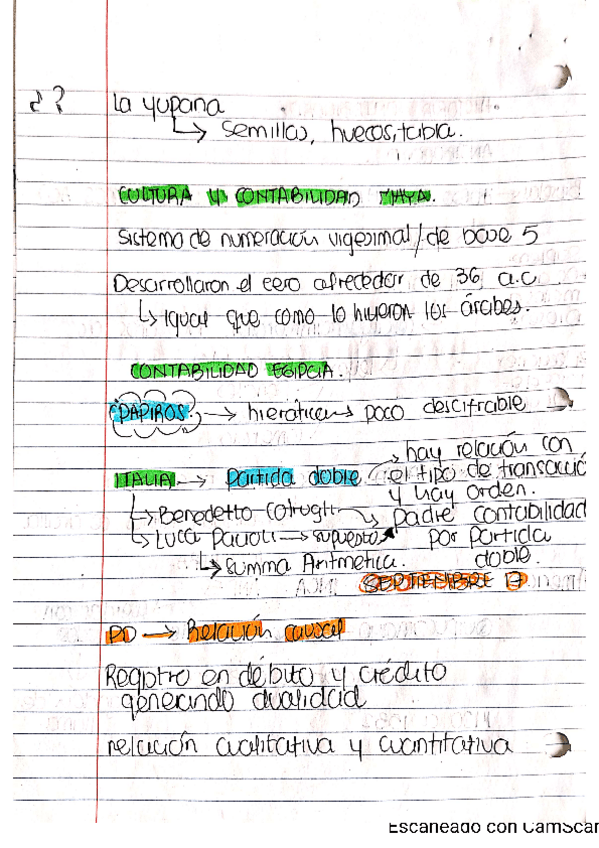 ¿?
La yupana
↳ semillas, huecos, tabla.
CULTURA Y CONTABILIDAD MAYA.
Sistema de numeración vigesimal / de base 5
Desarrollaron el cero alrededor de 36 a.c
↳ Igual que como lo hicieron los árabes.
CONTABILIDAD EGIPCIA.
PAPIROS → hieráticas → poco descifrable
ITALIA → Partida doble → hay relación con
el tipo de transacció
y hay orden.
↳ Benedetto Cotrugli → padre contabilidad
↳ Luca Pacioli → supuesto por partida
doble.
↳ Summa Aritmetica.
SEPTIEMBRE 17
PD → Relación causal
Registro en débito y crédito
generando dualidad
relación cualitativa y cuantitativa
Escaneado con CamScan